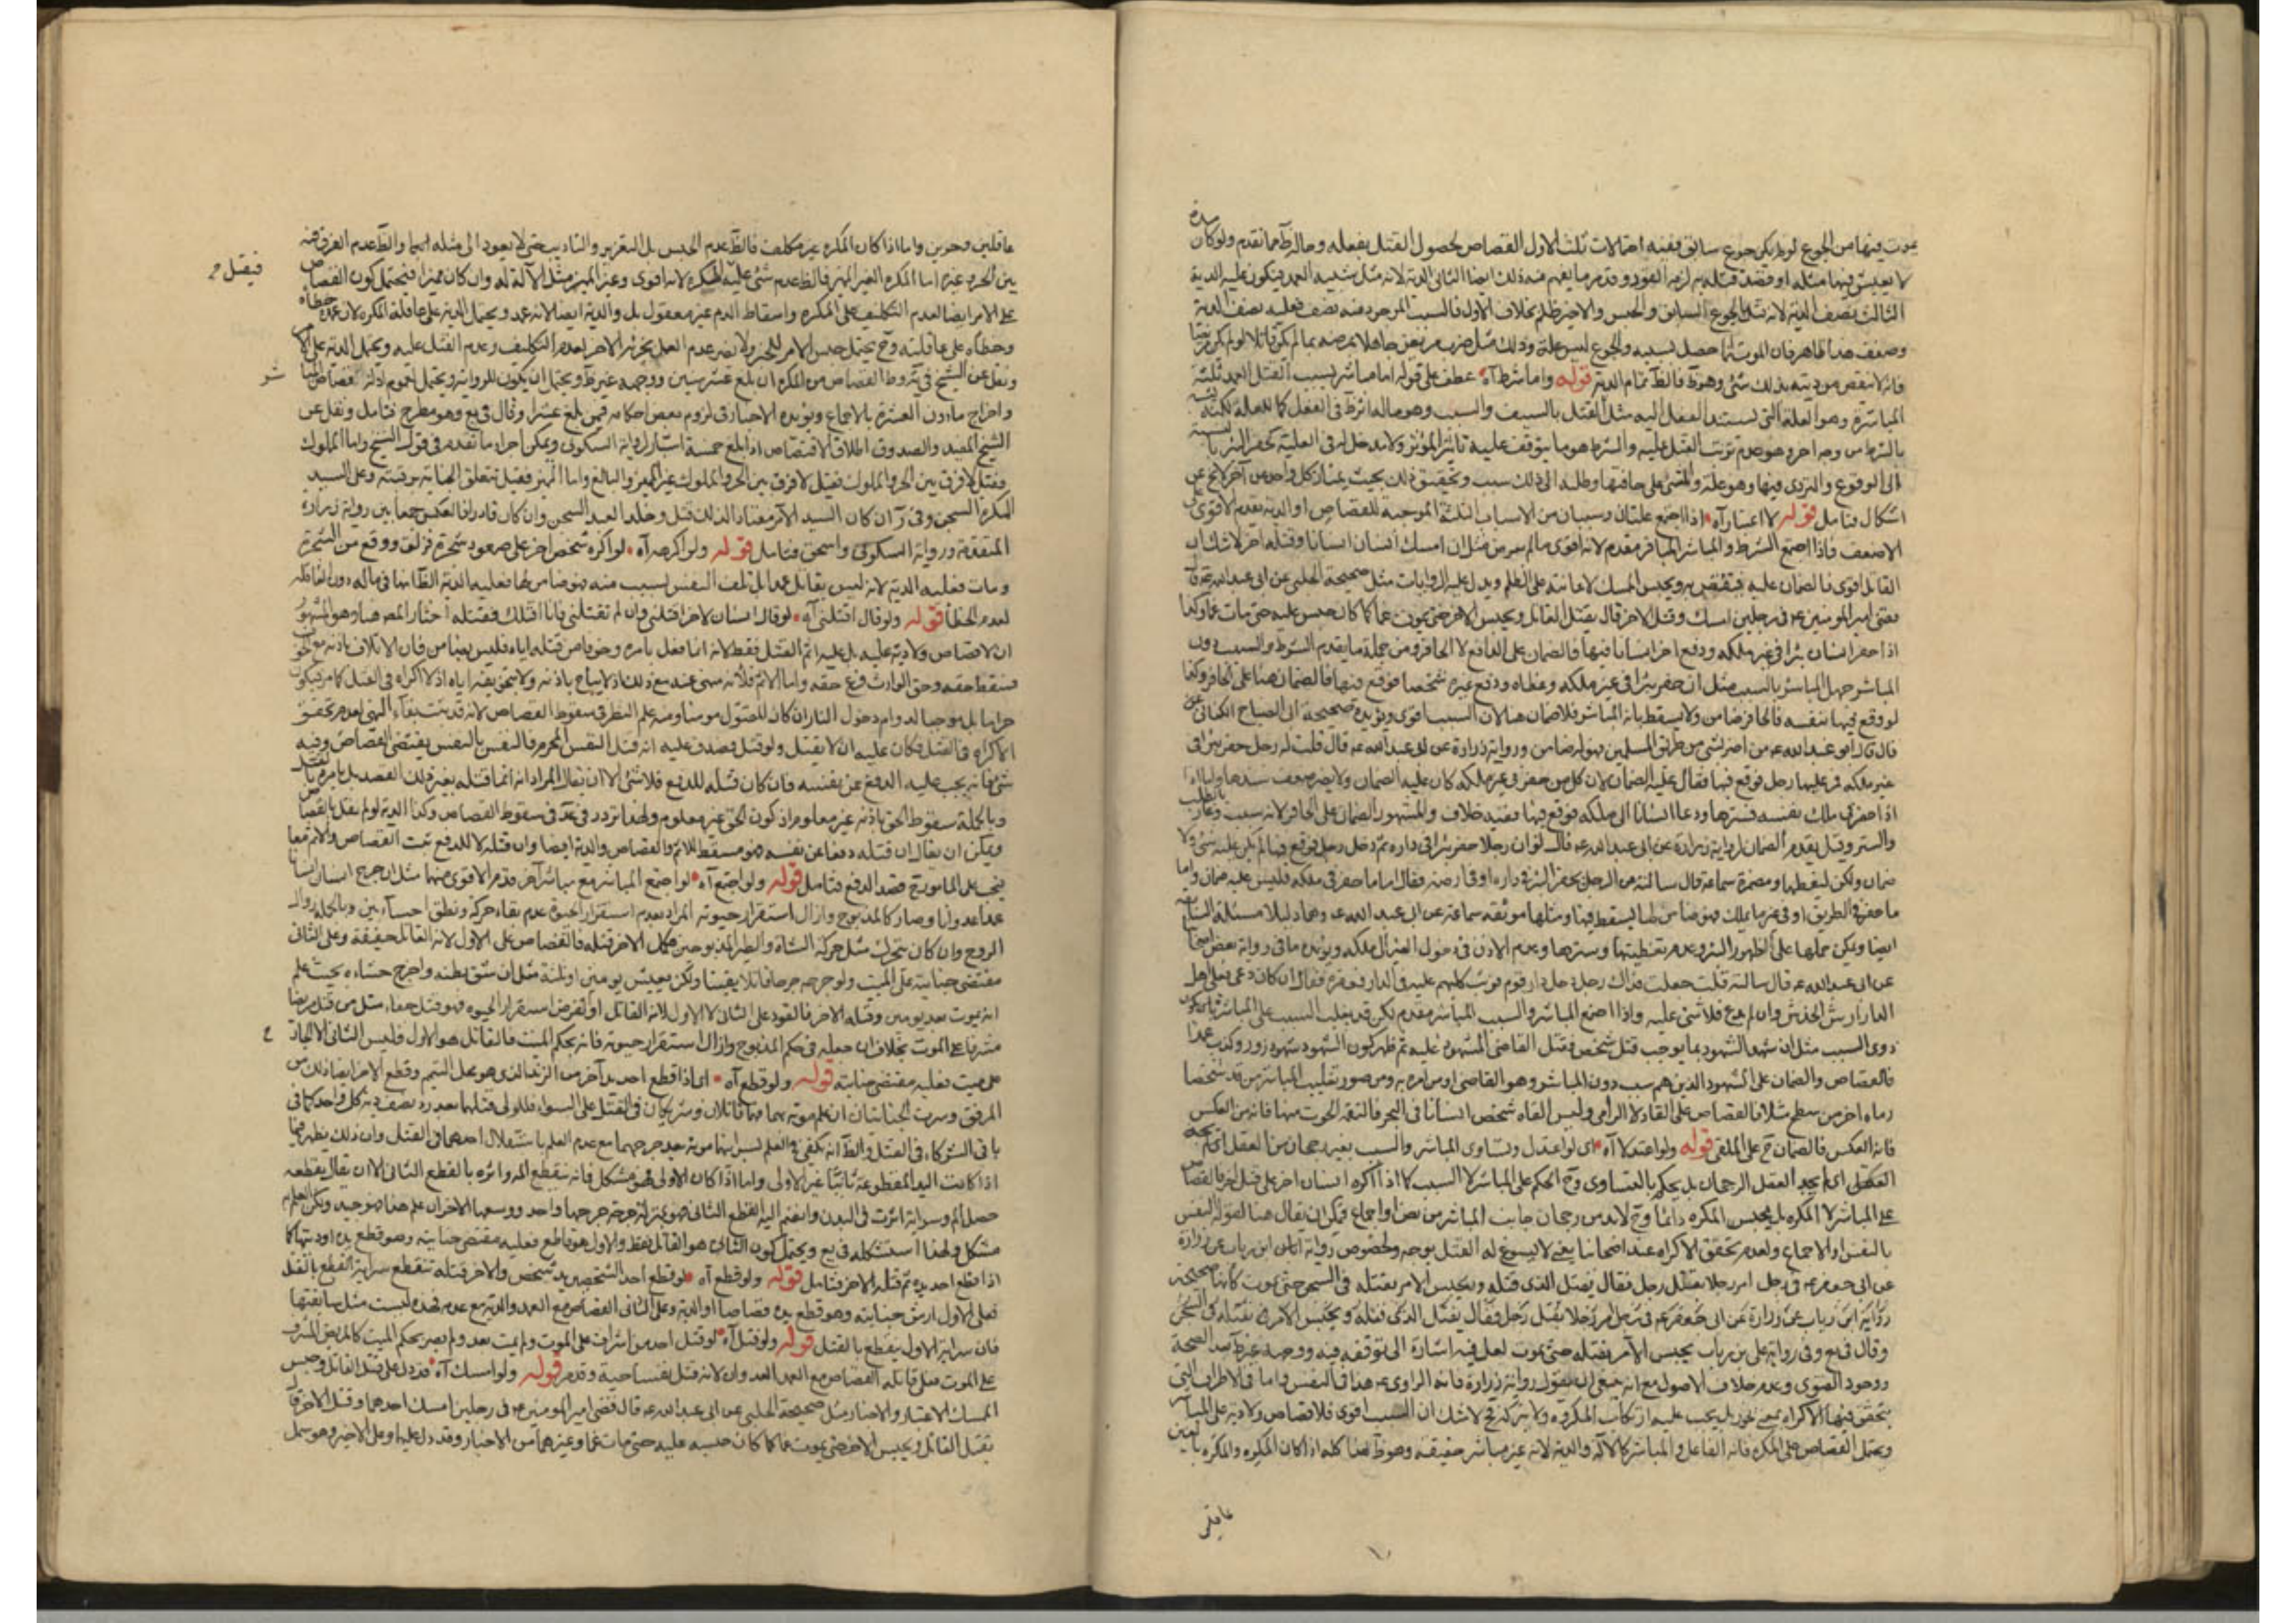 يموت فيها من الجوع لو لم يكن جوع سابق ففيه احتمالات ثلث الاول القصاص لحصول القتل بفعله وحاله ظ مما تقدم ولو كان
لا يعيش فيها مثله او قصد قتله به لزمه القود وقد مر ما يفهم منه ذلك ايضا الثانى الدية لانه مثل شبيه العمد فيكون عليه الدية
الثالث نصف الدية لانه مثل الجوع السابق والحبس والاخير ظلم بخلاف الاول فالسبب الموجود منه نصف فعليه نصف الدية
وضعف هذا ظاهر فان الموت انما حصل بسببه والجوع ليس علة وذلك مثل ضرب مريض جاهلا بمرضه بما لم يكن قاتلا لو لم يكن مريضا
فانه لا ينقص من ديته بذلك شئ وهو ظ فالظ تمام الدية قوله واما شرط آه عطف على قوله اما مباشر بسبب القتل العمد ثلثة
المباشرة وهو العلة التى يستند الفعل اليه مثل القتل بالسيف والسبب وهو ماله اثر ظ فى الفعل كما للعلة لكنه يشبه
بالشرط من وجه اخر وهو عدم ترتب القتل عليه والشرط هو ما يتوقف عليه تاثير المؤثر ولا مدخل له فى العلية كحفر البئر بالنسبة
الى الوقوع والتردى فيها وهو علة والمشى على حافتها وطلبه الى ذلك سبب وتحقيق ذلك بحيث يمتاز كل واحد من آخر لا يخ عن
اشكال فتامل قوله لا اعتبار آه اذا اجتمع علتان وسببان من الاسباب الثلثة الموجبة للقصاص او الدية يقدم الاقوى على
الاضعف فاذا اجتمع الشرط والمباشر فالمباشر مقدم لانه اقوى مالم يسر من مثل ان امسك انسان انسانا وقتله اخر لا شك ان
القاتل اقوى فالضمان عليه فيقتص به ويحبس الممسك لاعانته على الظلم ويدل عليه الروايات مثل صحيحة الحلبى عن ابى عبد الله ع قال
قضى امير المؤمنين ع فى رجلين امسك وقتل الاخر قال يقتل القاتل ويحبس الاخر حتى يموت غما كما كان حبس عليه حتى مات غما وكذا
اذا حفر انسان بئرا فى غير ملكه ودفع اخر انسانا فيها فالضمان على الدافع لا الحافر ومن جملة ما يقدم الشرط والسبب دون
المباشر جهل المباشر بالسبب مثل ان حفر بئرا فى غير ملكه وغطاه ودفع غيره شخصا فوقع فيها فالضمان هنا على الحافر وكذا
لو وقع فيها بنفسه فالحافر ضامن ولا يسقط بانه المباشر فلا ضمان هنا لان السبب اقوى ويؤيده صحيحة ابى الصباح الكنانى عن
قال قال ابو عبد الله ع من اضر بشئ من طريق المسلمين فهو له ضامن ورواية زرارة عن ابى عبد الله ع قال قلت له رجل حفر بئرا فى
غير ملكه فمر عليها رجل فوقع فيها فقال عليه الضمان لان كل من حفر فى غير ملكه كان عليه الضمان ولا يضر ضعف سندها واما اذا
اذا حفر فى ملك نفسه فسترها ودعا انسانا الى ملكه فوقع فيها ففيه خلاف والمشهور الضمان على الحافر لانه سبب وغار بالطلب
والستر وقيل بعدم الضمان لرواية زرارة عن ابى عبد الله ع قال لو ان رجلا حفر بئرا فى داره ثم دخل رجل فوقع فيها لم يكن عليه شئ ولا
ضمان ولكن ليغطها ومضمرة سماعة قال سالته عن الرجل يحفر البئر فى داره او فى ارضه فقال اما ما حفر فى ملكه فليس عليه ضمان واما
ما حفر فى الطريق او فى غير ما يملك فهو ضامن لما يسقط فيها ومثلها موثقة سماعة عن ابى عبد الله ع وهما دليلا مسئلة السابقة
ايضا ويمكن حملها على الظهور البئر وعدم تغطيتها وسترها وعدم الاذن فى دخول الغير الى ملكه ويؤيده ما فى رواية بعض اصحابنا
عن ابى عبد الله ع قال سالته قلت جعلت فداك رجل دخل دار قوم فوثب كلبهم عليه فى الدار فعقره فقال ان كان دعى فعلى اهل
الدار ارش الخدش وان لم يدع فلا شئ عليه واذا اجتمع المباشر والسبب المباشر مقدم لكن قد يغلب السبب على المباشر بان يكون
ذوى السبب مثل ان شهد الشهود بما يوجب قتل شخص فقتل القاضى المشهود عليه ثم ظهر كون الشهود شهود زور وكذب عمدا
فالقصاص والضمان على الشهود الذين هم سبب دون المباشر وهو القاضى او من امره به ومن صور تغليب المباشر من قد شخصا
رماه اخر من سطح مثلا فالقصاص على القاد لا الرامى وليس القاه شخص انسانا فى البحر فالتقمه الحوت منها فانه من العكس
فانه العكس فالضمان ح على الملقى قوله ولو اعتدلا آه اى لو اعتدل وتساوى المباشر والسبب بغير رجحان من العقل اى لم يحكم
العقل اى لم يجد العقل الرجحان بل يحكم بالتساوى وح الحكم على المباشر لا السبب كما اذا اكره انسان اخر على قتل اخر فالقصاص
على المباشر لا المكره بل يحبس المكره دائما وح لا بد من رجحان جانب المباشر من نص او اجماع فيمكن ان يقال هنا لقوله النفس
بالنفس او الاجماع ولعدم تحقق الاكراه عند اصحابنا يعنى لا يسوغ له القتل بوجه ولخصوص رواية ابن رباب عن زرارة
عن ابى جعفر ع فى رجل امر رجلا بقتل رجل فقال يقتل الذى قتله ويحبس الامر بقتله فى السجن حتى يموت كانها صحيحة
رواية ابن رباب عن زرارة عن ابى جعفر ع فى رجل امر رجلا بقتل رجل فقال يقتل الذى قتله ويحبس الامر بقتله فى السجن
وقال فى يع وفى رواية على بن رباب يحبس الآمر بقتله حتى يموت لعل فيه اشارة الى توقفه فيه ووجهه غير ظ بعد الصحة
ووجود الفتوى وعدم خلاف الاصول مع انه ينبغى ان يقول رواية زرارة فانه الراوى ع هذا فى النفس واما فى الاطراف التى
يتحقق فيها الاكراه بل يجب عليه ارتكاب المكروه ولا يتركه فح لا شك ان السبب اقوى فلا قصاص ولا دية على المباشر
ويحتمل القصاص على المكره فانه الفاعل والمباشر كالآلة والدية لانه غير مباشر حقيقة وهو ظ هذا كله اذا كان المكره والمكره بالغين
عاقلين
عاقلين وحرين واما اذا كان المكره غير مكلف فالظ عدم الحبس بل التعزير والتاديب حتى لا يعود الى مثله ايهما والظ عدم الفرق فيه
بين الحر وغيره اما المكره الغير المميز فالظ عدم شئ عليه المكره لانه اقوى وغير المميز مثل الآلة له وان كان مميزا فيحتمل كون القصاص
فيقتل
على الامر ايضا لعدم التكليف على المكره واسقاط الدم غير معقول بل والدية ايضا لانه عمد ويحتمل الدية على عاقلة المكره لان عمده خطاه
وخطاه على عاقلته وح يحتمل حبس الامر للخبر ولا يضر عدم العمل بجزئه الاخر لعدم التكليف وعدم القتل عليه ويحتمل الدية على الامر
ونقل عن الشيخ فى ية وط القصاص من المكره ان بلغ عشر سنين ووجهه غير ظ ويحتمل ان يكون للرواية ويحتمل لعموم ادلة قصاص
واخراج مادون العشرة بالاجماع ويؤيده الاخبار فى لزوم بعض احكامه فيمن بلغ عشرا وقال فى يع وهو مطرح فتامل ونقل عن
الشيخ المفيد والصدوق اطلاق الاقتصاص اذا بلغ خمسة اشبار لرواية السكونى ويمكن اجراء ما تقدم فى قول الشيخ واما المملوك
فقيل لا فرق بين الحر والمملوك فقيل لا فرق بين الحر والمملوك غير المميز والبالغ واما المميز فقيل تتعلق الجناية برقبته وعلى السيد
المكره السجن وفى ان كان السيد الآمر معتادا لذلك قتل وخلد العبد السجن وان كان نادرا فالعكس جمعا بين رواية زرارة
المتقدمة ورواية السكونى واسحق فتامل قوله ولو اكرهه آه لو اكره شخص اخر على صعود شجرة فزلق ووقع من الشجرة
ومات فعليه الدية لانه ليس بقاتل عمدا بل تلف النفس بسبب منه فهو ضامن لها فعليه الدية الظ انها فى ماله دون العاقلة
لعدم الخطأ قوله ولو قال اقتلنى آه لو قال انسان لاخر اقتلنى وان لم تقتلنى فانا اقتلك فقتله اختار المص هنا وهو المشهور
ان لا قصاص ولا دية عليه بل عليه اثم القتل فقط لانه انما فعل بامره وخوفا من قتله اياه فليس بضامن فان الاتلاف باذنه مع خوف
فسقط حقه وحق الوارث فرع حقه واما الاثم فلأنه منهى عنه مع ذلك اذ لا يباح باذنه ولا بتخويفه اياه اذ لا اكراه فى القتل كما مر فيكون
حراما بل موجبا لدوام دخول النار ان كان المقتول مومنا ومنه علم النظر فى سقوط القصاص لانه قد يثبت بقاء النهى لعدم تحقق
الاكراه فى القتل فكان عليه ان لا يقتل ولو قتل فصدق عليه انه قتل النفس المحرم فالنفس بالنفس يقتضى القصاص وفيه
شئ فانه يجب عليه الدفع عن نفسه فان كان قتله للدفع فلا شئ الا ان يقال المراد انه انما قتله بغير ذلك القصد بل بامره بالقتل
وبالجملة سقوط الحق باذنه غير معلوم اذ كون الحق غير معلوم ولهذا تردد فى عد فى سقوط القصاص وكذا الدية لو لم نقل بالقصاص
ويمكن ان يقال ان قتله دفعا عن نفسه فهو مسقط للاثم والقصاص والدية ايضا وان قتله لا للدفع ثبت القصاص والاثم معا
فيجب على المامور ح قصد الدفع فتامل قوله ولو اجتمع آه لو اجتمع المباشر مع مباشر آخر قدم الاقوى منهما مثل ان جرح انسان انسانا
عمدا عدوانا وصار كالمذبوح وازال استقرار حيوته المراد بعدم استقرار الحيوة عدم بقاء حركة ونطق احساسين وبالجملة زوال
الروح وان كان يتحرك مثل حركة الشاة والطير المذبوحين فكمل الاخر قتله فالقصاص على الاول لانه القاتل حقيقة وعلى الثانى
مقتضى جنايته على الميت ولو جرحه جرحا قاتلا يقينا ولكن يعيش يومين او ثلثة مثل ان شق بطنه واخرج حشاه بحيث علم
انه يموت بعد يومين وقتله الاخر فالقود على الثانى لا الاول لانه القاتل او لفرض استقرار الحيوة فهو قتل حقا مثل من قتل مريضا
مشرفا على الموت بخلاف ان جعله فى حكم المذبوح وازال استقرار حيوته فانه بحكم الميت فالقاتل هو الاول فليس الثانى الا الجانى
على ميت فعليه مقتضى جنايته قوله ولو قطع آه اى اذا قطع احد يد آخر من الزند الذى هو محل التيمم وقطع الاخر ايضا ذلك من
المرفق وسرت الجنايتان ان علم موته بهما فهما قاتلان وشريكان فى القتل على السواء فللولى قتلهما بعد رد نصف دية كل واحد كما فى
باقى الشركاء فى القتل والظ انه يكفى فى العلم بسرايتهما موته بعد جرحهما مع عدم العلم باستقلال احدهما فى القتل وان ذلك يظهر فيما
اذا كانت اليد المقطوعة ثانيا غير الاولى واما اذا كان الاولى فهو مشكل فانه ينقطع الم واثره بالقطع الثانى الا ان يقال بقطعه
حصل الم وسراية اثرت فى البدن وانضم اليه القطع الثانى فهو بمنزلة جرحه جرحها واحد ووسعها الاخران علم هذا فهو جيد ولكن العلم به
مشكل ولهذا استشكله فى يع ويحتمل كون الثانى هو القاتل فقط والاول هو قاطع فعليه مقتضى جنايته وهو قطع يده او ديتها كما
اذا قطع احد يده ثم قتله الاخر فتامل قوله ولو قطع آه لو قطع احد الشخصين يد شخص والاخر قتله تنقطع سراية القطع بالقتل
فعلى الاول ارش جنايته وهو قطع يده قصاصا او الدية وعلى الثانى القصاص مع العمد والدية مع عدمه فهذه ليست مثل سابقتها
فان سراية الاول ينقطع بالقتل قوله ولو قتل آه لو قتل احد من اشراف على الموت ولم يمت بعد ولم يصر بحكم الميت كالمريض المشرف
على الموت فعلى قاتله القصاص مع العمد العدوان لانه قتل نفسا حية وقد مر قوله ولو امسك آه قد دل على قتل القاتل وحبس
الممسك الاعتبار والاخبار مثل صحيحة الحلبى عن ابى عبد الله ع قال قضى امير المومنين ع فى رجلين امسك احدهما وقتل الاخر قال
يقتل القاتل ويحبس الاخر حتى يموت غما كما كان حبسه عليه حتى مات غما وغيرها من الاخبار وقد دل عليه وعلى الاخير وهو سمل